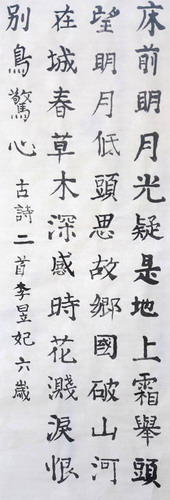 床前明月光疑是地上霜舉頭
望明月低頭思故鄉國破山河
在城春草木深感時花濺淚恨
別鳥驚心古詩二首李昱妃六歲